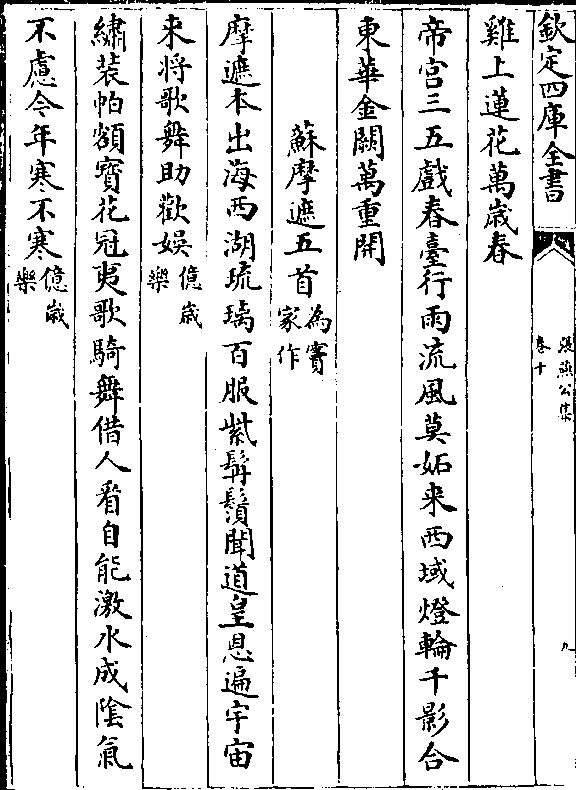 欽定四庫全書
張燕公集
卷十
九
雞上蓮花萬歲春
帝宮三五戲春臺行雨流風莫妬来西域燈輪千影合
東華金闕萬重開
蘇摩遮五首為賽家作
摩遮本出海西湖琉璃百服紫髯鬚聞道皇恩遍宇宙
来将歌舞助歡娛億歲樂
繡装帕額寳花冠夷歌騎舞借人看自能激水成陰氣
不慮今年寒不寒億歲樂